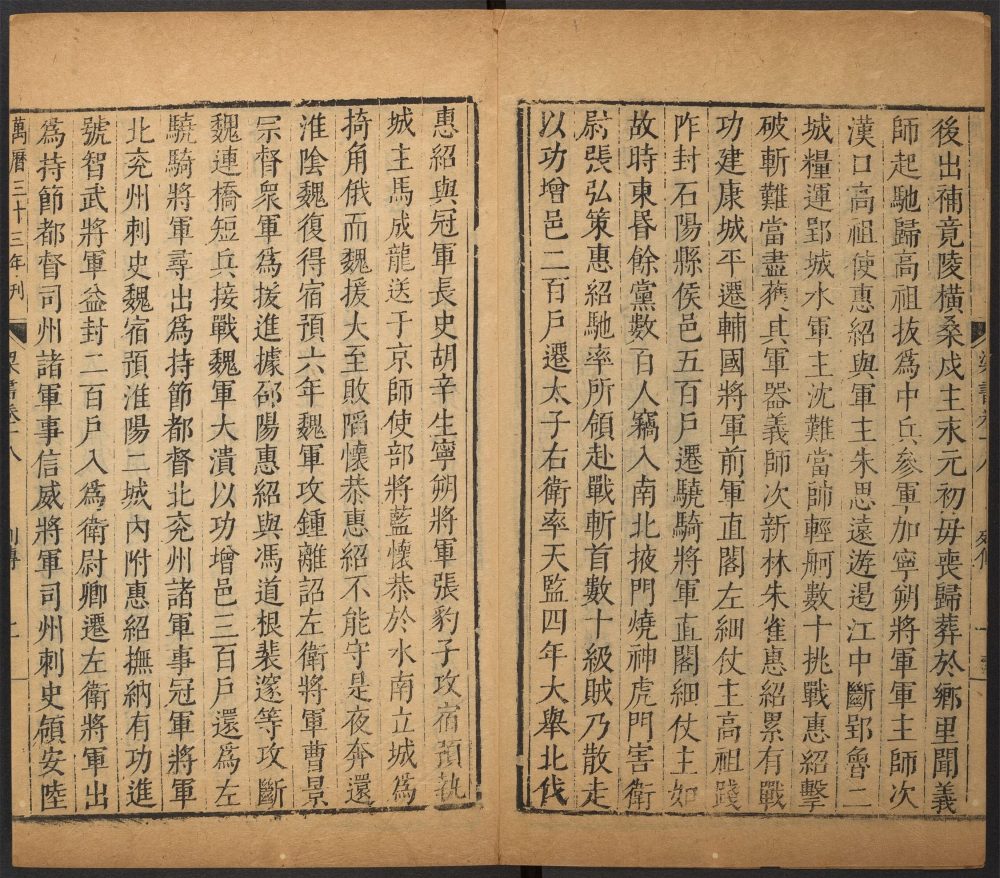 後出補竟陵橫桑戍主永元初毋喪歸葬於鄉里聞義
師起馳歸高祖拔爲中兵參軍加寧朔將軍軍主師次
漢口高祖使惠紹與軍主朱思遠遊遏江中斷郢魯二
城糧運郢城水軍主沈難當帥輕舸數十挑戰惠紹擊
破斬難當盡獲其軍器義師次新林朱雀惠紹累有戰
功建康城平遷輔國將軍前軍直閣左細仗主高祖踐
阼封石陽縣侯邑五百戶遷驍騎將軍直閣細仗主如
故時東昏餘黨數百人竊入南北掖門燒神虎門害衛
尉張弘策惠紹馳率所領赴戰斬首數十級賊乃散走
以功增邑二百戶遷太子右衛率天監四年大舉北伐
惠紹與冠軍長史胡辛生寧朔將軍張豹子攻宿預執
城主馬成龍送于京師使部將藍懷恭於水南立城爲
掎角俄而魏援大至敗陷懷恭惠紹不能守是夜奔還
淮陰魏復得宿預六年魏軍攻鍾離詔左衛將軍曹景
宗督衆軍爲援進據邵陽惠紹與馮道根裴邃等攻斷
魏連橋短兵接戰魏軍大潰以功增邑三百戶還爲左
驍騎將軍尋出爲持節都督北兗州諸軍事冠軍將軍
北兗州刺史魏宿預淮陽二城內附惠紹撫納有功進
號智武將軍益封二百戶入爲衛尉卿遷左衛將軍出
爲持節都督司州諸軍事信威將軍司州刺史領安陸
萬曆三十三年刊 梁書卷十八 列傳 二